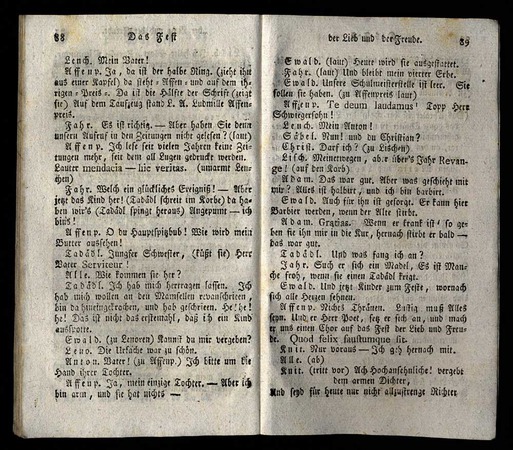 88 Das Fest
Lench. Mein Vater!
Affenp. Ja, da ist der halbe Ring. (zieht ihn
aus einer Kapsel) da steht = Affen = und auf dem ih-
rigen = Preis =. Da ist die Hälfte der Schrift (zeigt
sie) Auf dem Taufzeug stand L. A. Ludmille Affen-
preis.
Fahr. Es ist richtig. — Aber haben Sie denn
unsern Aufruf in den Zeitungen nicht gelesen? (laut)
Affenp. Ich lese seit vielen Jahren keine Zei-
tungen mehr, seit dem all Lugen gedruckt werden.
Lauter mendacia — hic veritas. (umarmt Len-
chen)
Fahr. Welch ein glückliches Ereigniß! — Aber
jetzt das Kind her! (Tadädl schreit im Korbe) da ha-
ben wir's (Tadädl springt heraus) Angepumt — ich
bins!
Affenp. O du Hauptspitzbub! Wie wird mein
Vutter aussehen!
Tadädl. Jungfer Schwester, (küßt sie) Herr
Vater Serviteur!
Alle. Wie kommen sie her?
Tadädl. Ich hab mich hertragen lassen. Ich
hab mich wollen an den Mamsellen revanschiren,
bin da hineingekrochen, und hab geschrien. He! he!
he! Das ist nicht das erstemahl, daß ich ein Kind
ausspotte.
Ewald. (zu Lenoren) Kannst du mir vergeben?
Leno. Die Ursache war zu schön.
Anton. Vater! (zu Affenp.) Ich bitte um die
Hand ihrer Tochter.
Affenp. Ja, mein einzige Tochter. — Aber ich
bin arm, und sie hat nichts —
der Lieb und der Freude. 89
Ewald. (laut) Heute wird sie ausgestattet.
Fahr. (laut) Und bleibt mein vierter Erbe.
Ewald. Unsere Schulmeisterstelle ist leer. Sie
sollen sie haben. (zu Affenpreis laut)
Affenp. Te deum laudamus! Topp Herr
Schwiegersohn!
Lench. Mein Anton!
Säbel. Nun! und du Christian?
Christ. Darf ich? (zu Lischen)
Lisch. Meinerwegen, aber über's Jahr Revan-
ge! (auf den Korb)
Adam. Das war gut. Aber was geschieht mit
mir? Alles ist halbirt, und ich bin barbirt.
Ewald. Auch für ihn ist gesorgt. Er kann hier
Barbier werden, wenn der Alte stirbt.
Adam. Grazias. Wenn er krank ist, so ge-
ben sie ihn mir in die Kur, hernach stirbt er bald —
das war gut.
Tadädl. Und was fang ich an?
Fahr. Such er sich ein Madel, Es ist Man-
che froh, wenn sie einen Tadädl kriegt.
Ewald. Und jetzt Kinder zum Feste, wornach
sich alle Herzen sehnen.
Affenp. Nichts Thränen. Lustig muß Alles
seyn. Und er Herr Poet, setz er sich an, und mach
er uns einen Chor auf das Fest der Lieb und Freu-
de. Quod felix faustumque sit.
Knit. Nur voraus — Ich geh hernach mit.
Alle. (ab)
Knit. (tritt vor) Ach Hochansehnliche! vergebt
dem armen Dichter,
Und seyd für heute nur nicht allzustrenge Richter